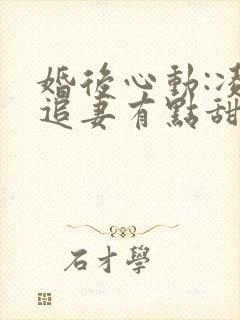 婚後心動:凌
追妻有點甜
石才學